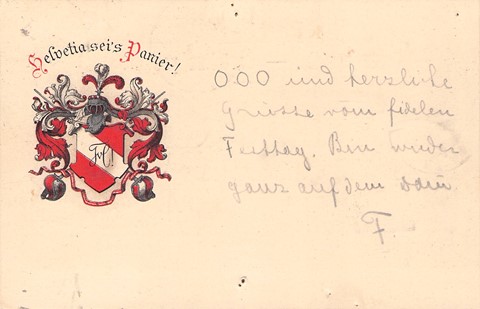 Helvetia sei's Panier!
000 und herzliche
Grüsse vom fidelen
Festtag. Bin wieder
ganz auf dem Damm.
F.